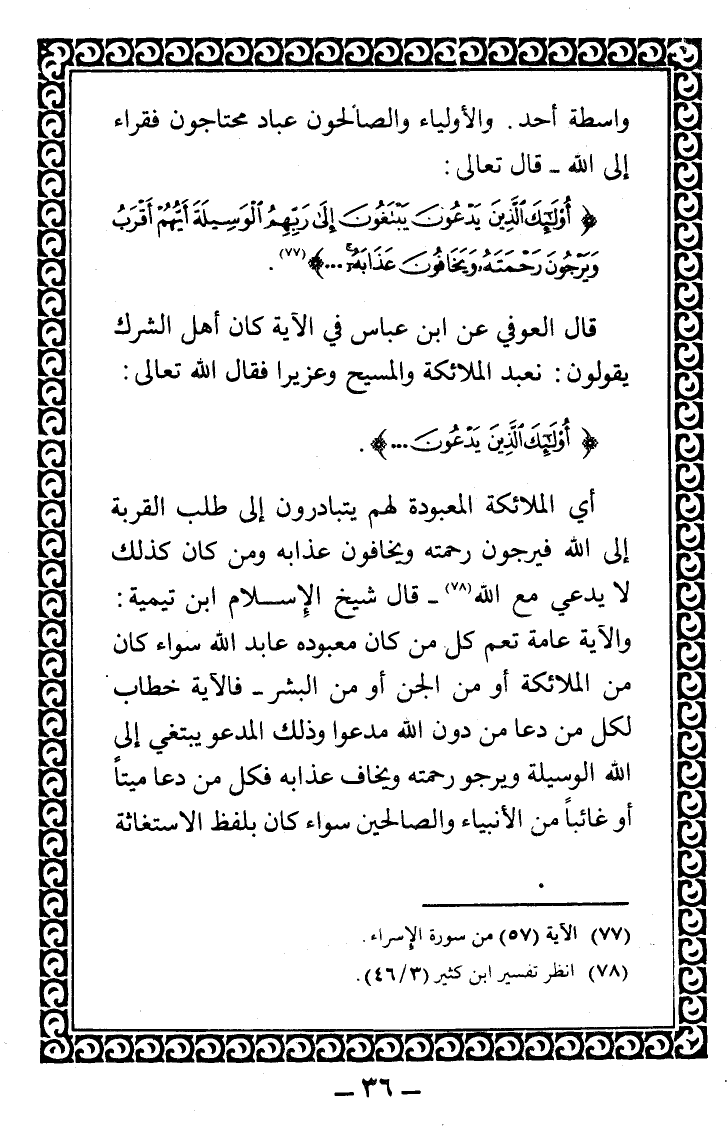 واسطة أحد. والأولياء والصالحون عباد محتاجون فقراء
إلى الله ـ قال تعالى:
﴿ أُوْلَٰٓئِكَ ٱلَّذِينَ يَدْعُونَ يَبْتَغُونَ إِلَىٰ رَبِّهِمُ ٱلْوَسِيلَةَ أَيُّهُمْ أَقْرَبُ
وَيَرْجُونَ رَحْمَتَهُۥ وَيَخَافُونَ عَذَابَهُۥٓ ...﴾(٧٧) .
قال العوفي عن ابن عباس في الآية كان أهل الشرك
يقولون: نعبد الملائكة والمسيح وعزيرا فقال الله تعالى:
﴿ أُوْلَٰٓئِكَ ٱلَّذِينَ يَدْعُونَ ...﴾ .
أي الملائكة المعبودة لهم يتبادرون إلى طلب القربة
إلى الله فيرجون رحمته ويخافون عذابه ومن كان كذلك
لا يدعي مع الله(٧٨) ـ قال شيخ الإسلام ابن تيمية:
والآية عامة تعم كل من كان معبوده عابد الله سواء كان
من الملائكة أو من الجن أو من البشر ـ فالآية خطاب
لكل من دعا من دون الله مدعوا وذلك المدعو يبتغي إلى
الله الوسيلة ويرجو رحمته ويخاف عذابه فكل من دعا ميتاً
أو غائباً من الأنبياء والصالحين سواء كان بلفظ الاستغاثة
(٧٧) الآية (٥٧) من سورة الإسراء.
(٧٨) انظر تفسير ابن كثير (٤٦/٣).
ـ ٣٦ ـ